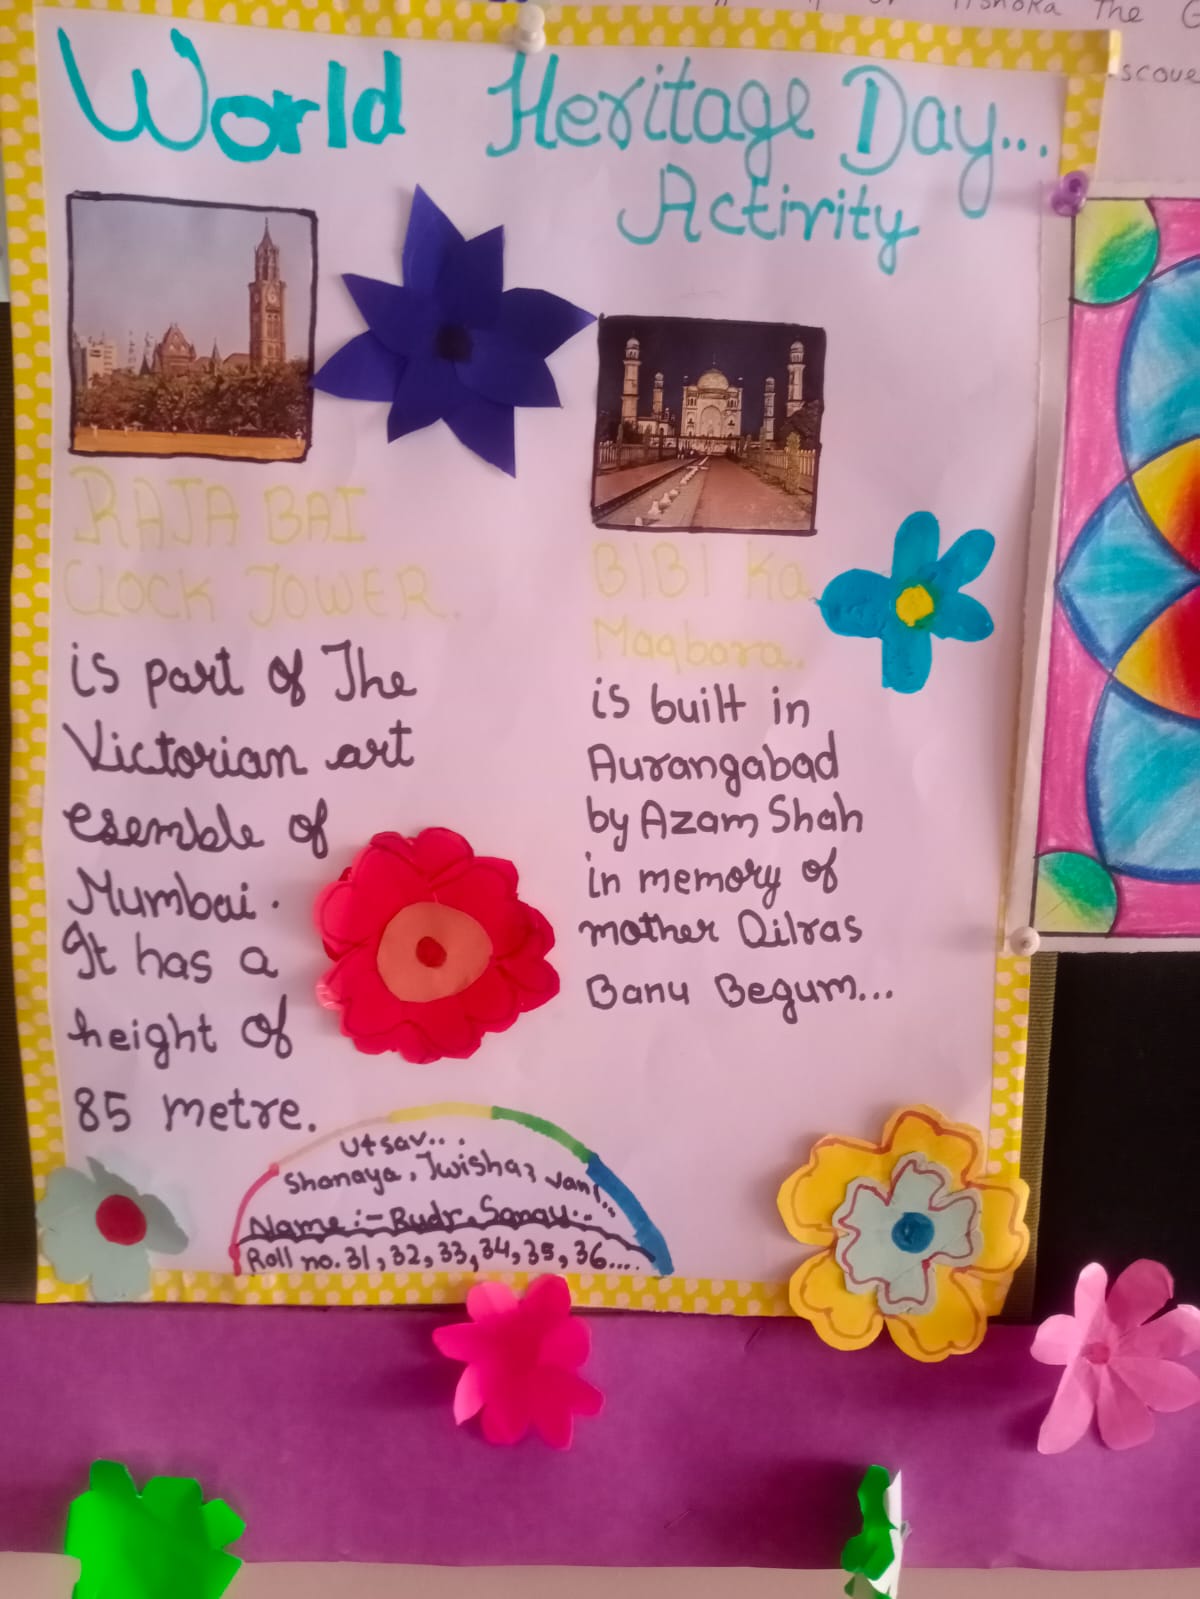 Ashoka The G
scove
World Heritage Day...
Activity
RAJA BAI
CLOCK TOWER.
is part of The
Victorian art
esemble of
Mumbai.
It has a
height of
85 metre.
BIBI Ka
Maqbara.
is built in
Aurangabad
by Azam Shah
in memory of
mother Dilras
Banu Begum...
Utsav...
Shanaya, Twisha, Vani...
Name :- Rudr, Samay...
Roll no. 31, 32, 33, 34, 35, 36....